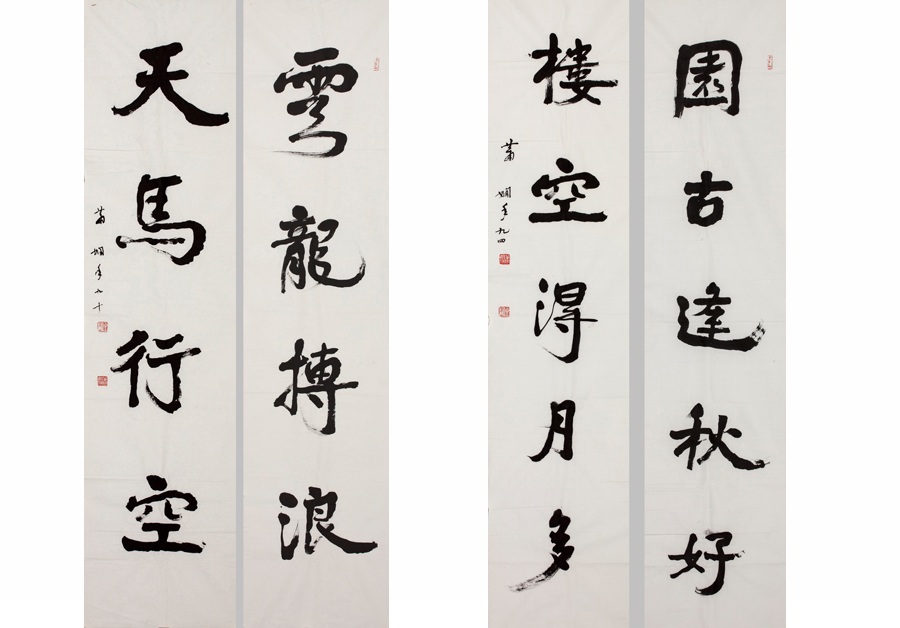 園古逢秋好
樓空得月多
蕭嫻年九四
雲龍搏浪
天馬行空
蕭嫻年九十